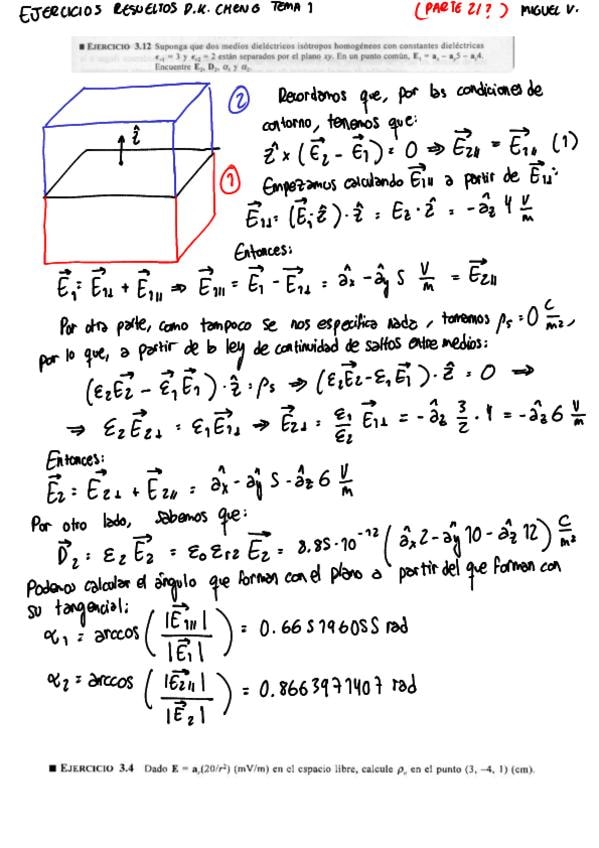 EJERCICIOS RESUELTOS D.K. CHENG TEMA 1 (PARTE 2/?) MIGUEL V.
■ EJERCICIO 3.12 Suponga que dos medios dieléctricos isótropos homogéneos con constantes dieléctricas
ϵr1 = 3 y ϵr2 = 2 están separados por el plano xy. En un punto común, E₁ = aₓ − aᵧ5 − a_z4.
Encuentre E₂, D₂, α₁ y α₂.
② Recordamos que, por las condiciones de
contorno, tenemos que:
ẑ × (E⃗₂ - E⃗₁) = 0 ⇒ E⃗₂∥ = E⃗₁∥ (1)
① Empezamos calculando E⃗₁∥ a partir de E⃗₁⊥:
E⃗₁⊥ = (E⃗₁·ẑ)·ẑ = E₂·ẑ = -â_z 4 V/m
ẑ
Entonces:
E⃗₁ = E⃗₁⊥ + E⃗₁∥ ⇒ E⃗₁∥ = E⃗₁ - E⃗₁⊥ = âₓ - âᵧ 5 V/m = E⃗₂∥
Por otra parte, como tampoco se nos especifica nada, tomemos ρₛ = 0 C/m²,
por lo que, a partir de la ley de continuidad de saltos entre medios:
(ε₂E⃗₂ - ε₁E⃗₁)·ẑ = ρₛ ⇒ (ε₂E⃗₂ - ε₁E⃗₁)·ẑ = 0 ⇒
⇒ ε₂E⃗₂⊥ = ε₁E⃗₁⊥ ⇒ E⃗₂⊥ = ε₁/ε₂ E⃗₁⊥ = -â_z 3/2 · 4 = -â_z 6 V/m
Entonces:
E⃗₂ = E⃗₂⊥ + E⃗₂∥ = âₓ - âᵧ 5 - â_z 6 V/m
Por otro lado, sabemos que:
D⃗₂ = ε₂E⃗₂ = ε₀εr₂E⃗₂ = 8.85·10⁻¹² (âₓ 2 - âᵧ 10 - â_z 12) C/m²
Podemos calcular el ángulo que forman con el plano a partir del que forman con
su tangencial:
α₁ = arccos (|E⃗₁∥| / |E⃗₁|) = 0.665196055 rad
α₂ = arccos (|E⃗₂∥| / |E⃗₂|) = 0.8663971407 rad
■ EJERCICIO 3.4 Dado E = aᵣ(20/r²) (mV/m) en el espacio libre, calcule ρᵥ en el punto (3, −4, 1) (cm).